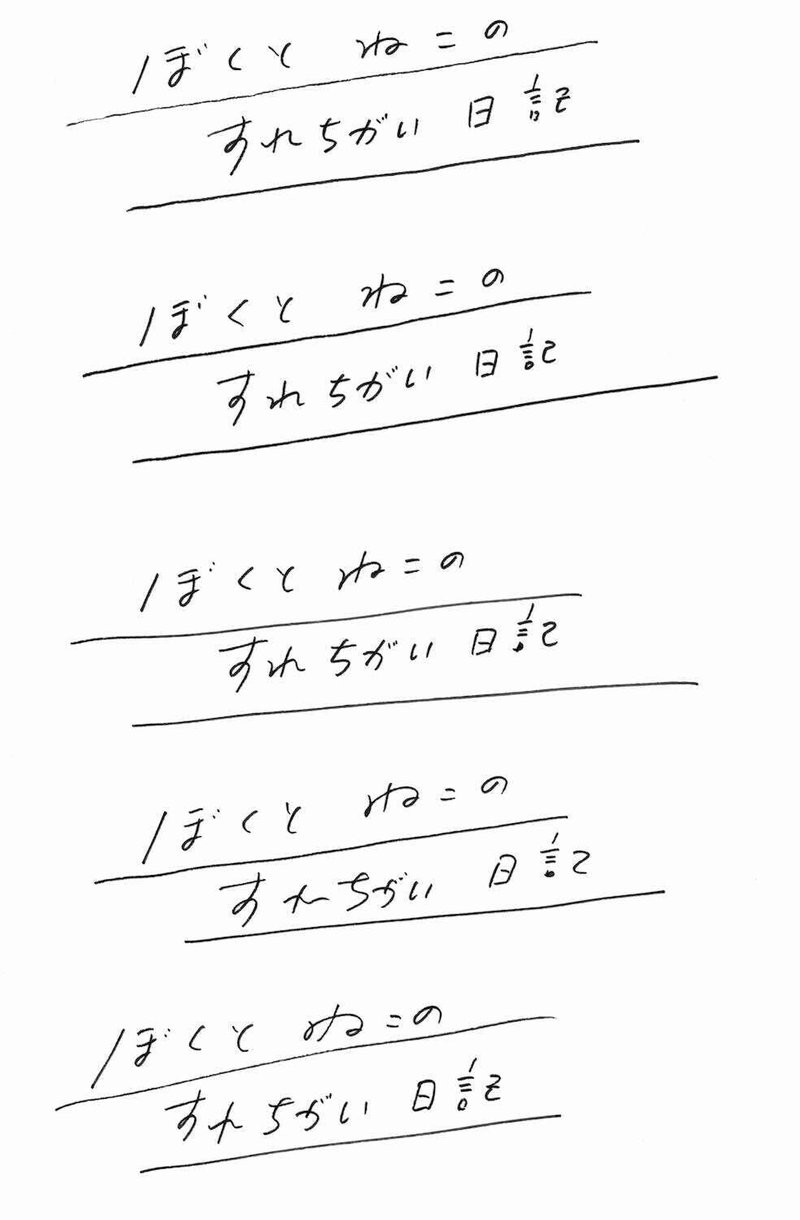 ぼくと ねこの
すれちがい 日記
ぼくと ねこの
すれちがい 日記
ぼくと ねこの
すれちがい 日記
ぼくと ねこの
すれちがい 日記
ぼくと ねこの
すれちがい 日記